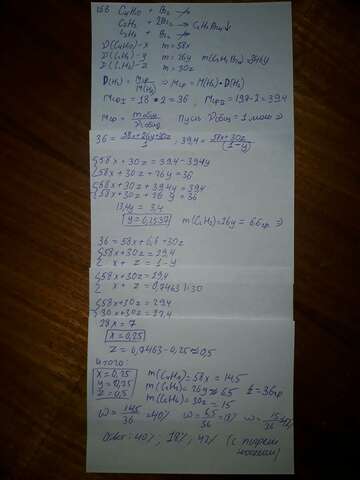 C₄H₁₀ + Br₂ ↛
C₂H₂ + 2Br₂ → C₂H₂Br₄↓
C₂H₆ + Br₂ ↛
ν(C₄H₁₀) - x m = 58x
ν(C₂H₂) - y m = 26y
ν(C₂H₆) - z m = 30z
D(H₂) = Mср/M(H₂) ⇒ Mср = M(H₂)·D(H₂)
Mср I = 18 · 2 = 36, Mср II = 19,7·2 = 39,4
Mср = mобщ/νобщ пусть νобщ = 1 моль ⇒
36 = 58x+26y+30z/1 ; 39,4 = 58x+30z/(1-y)
58x + 30z = 39,4 - 39,4y
58x + 30z + 26y = 36
58x + 30z + 39,4y = 39,4
58x + 30z + 26y = 36
13,4y = 3,4
y = 0,2537 m(C₂H₂) = 26y = 6,6 гр ⇒
36 = 58x + 6,6 + 30z
58x + 30z = 29,4
x + z = 1 - y
58x + 30z = 29,4
x + z = 0,7463 |·30
58x + 30z = 29,4
30x + 30z = 22,4
28x = 7
x = 0,25
z = 0,7463 - 0,25 ≈ 0,5
Итого:
x = 0,25 m(C₄H₁₀) = 58x = 14,5
y = 0,25 m(C₂H₂) = 26y ≈ 6,5 Σ = 36 гр
z = 0,5 m(C₂H₆) = 30z = 15
ω = 14,5/36 = 40% ω = 6,5/36 = 18% ω = 15/36 = 42%
Ответ: 40%, 18%, 42%